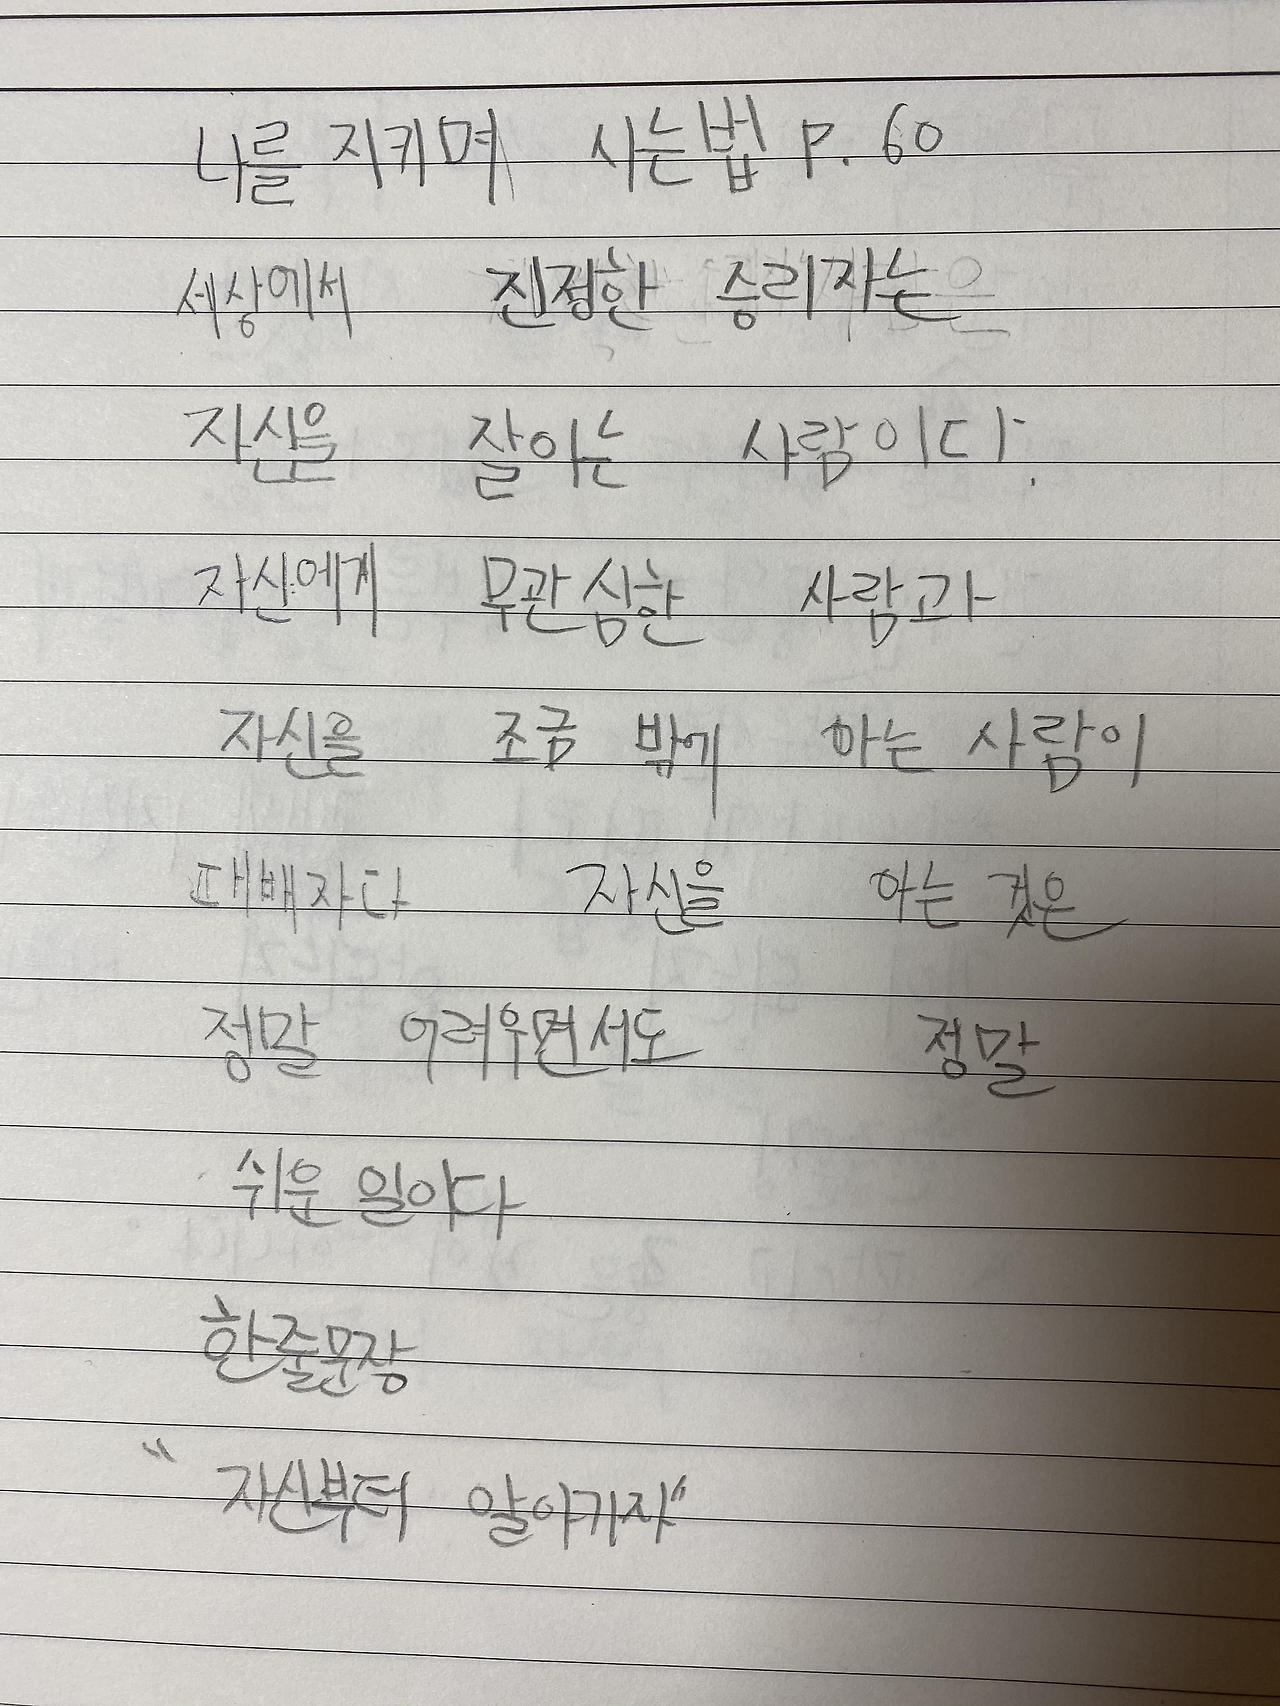 나를 지키며 사는법 P. 60
세상에서 진정한 승리자는
자신을 잘아는 사람이다.
자신에게 무관심한 사람과
자신을 조금 밖게 아는 사람이
대배자다 자신을 아는 것은
정말 어려우면서도 정말
쉬운 일이다
한줄문장
"자신부터 알아가자"